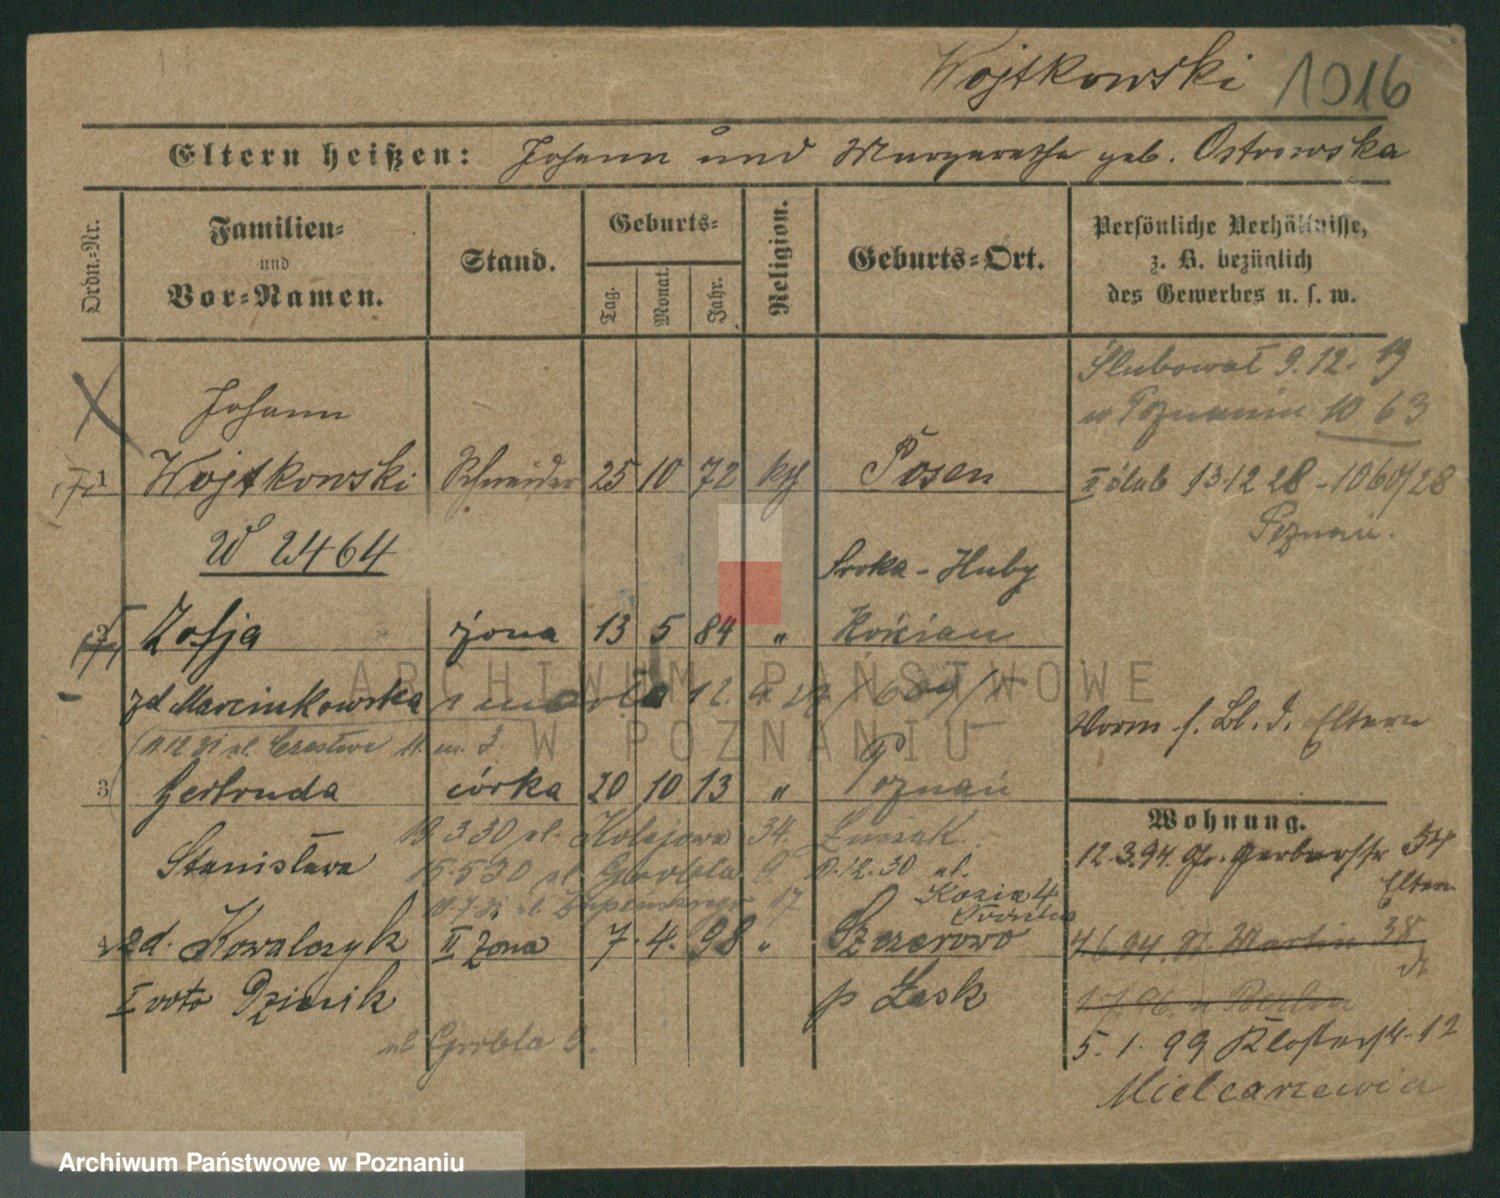 Wojtkowski 1016
Eltern heißen: Johann und Margarethe geb. Ostrowska
Ordn.-Nr.
Familien-
und
Vor-Namen.
Stand.
Geburts-
Tag.
Monat.
Jahr.
Religion.
Geburts-Ort.
Persönliche Verhältnisse,
z. B. bezüglich
des Gewerbes u. s. w.
Ślubował 9.12.19
w Poznaniu 1063
Johann
1 Wojtkowski Schneider 25 10 72 kth Posen
II ślub 13.12 28 - 1060/28
Poznań.
W 2464
Sroka - Huby
2 Zofja żona 13 5 84 " Kościan
zd. Marcinkowska zmarła 12. 4 27
Vorm s. Bl. d. Eltern
3 Gertruda córka 20 10 13 " Poznań
10.3.30 ul. Kolejowa 34.
Wohnung.
12.3.94. Gr. Gerberstr 54
Eltern
Stanisława 15.5.30 ul. Grobla 9. 9.12.30 ul.
Kozia 4
zd. Kowalczyk II żona 7. 4. 98 " Szczerowo
4.6.94. St. Martin 38
I voto Dziecik p Łask
1.7.96. n Berlin
5. 1. 99 Klosterstr. 12
ul Grobla 9.
Mielcarzewicz
ARCHIWUM PAŃSTWOWE
W POZNANIU
Archiwum Państwowe w Poznaniu